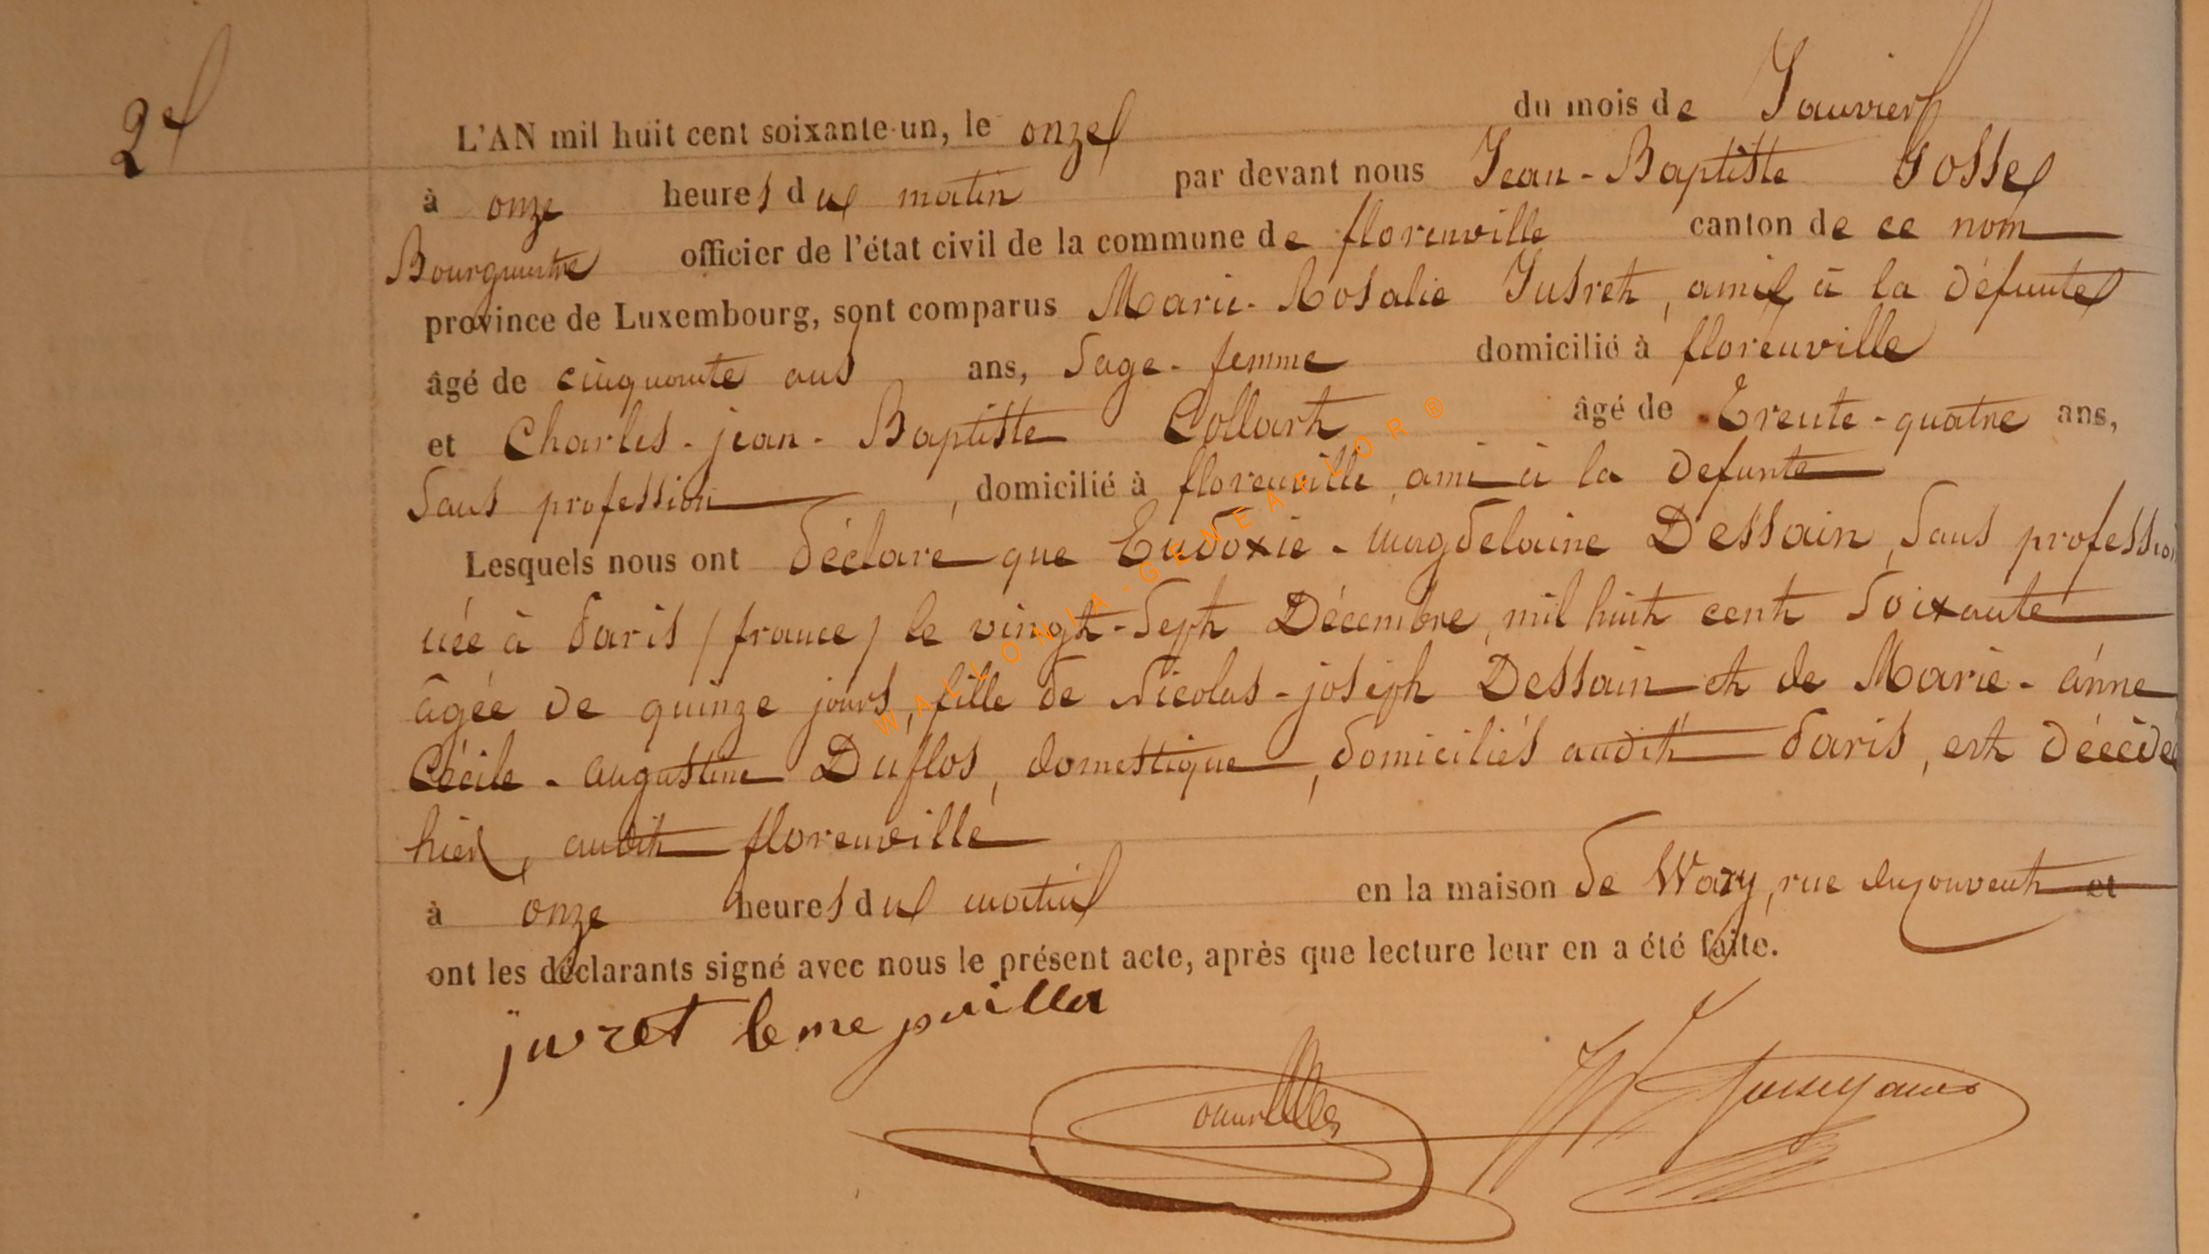 2e
L'AN mil huit cent soixante-un, le onze du mois de Janvier
à onze heures du matin par devant nous Jean-Baptiste Gosse
Bourgmestre officier de l'état civil de la commune de florenville canton de ce nom
province de Luxembourg, sont comparus Marie-Rosalie Jusret, amie à la défunte
âgé de cinquante ans ans, Sage-femme domicilié à florenville
et Charles-jean-Baptiste Collart âgé de Trente-quatre ans,
Sans profession, domicilié à florenville, ami à la defunte
Lesquels nous ont déclaré que Eudoxie-magdelaine Dessain, Sans profession
née à Paris (france) le vingt-Sept Décembre, mil huit cent Soixante
âgée de quinze jours, fille de Nicolas-joseph Dessain et de Marie-anne
Cécile-augustine Duflos, domestique, domiciliés audit Paris, est décédée
hier, audit florenville
à onze heures du matin en la maison de Wary, rue du couvent et
ont les déclarants signé avec nous le présent acte, après que lecture leur en a été faite.
juvret
WALLONIA-GENEAFLOR ®